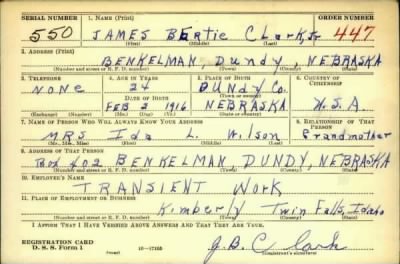 SERIAL NUMBER 1. NAME (Print) ORDER NUMBER
550 JAMES BERTIE CLARK Jr 447
(First) (Middle) (Last)
2. ADDRESS (Print)
BENKELMAN, Dundy, NEBRASKA
(Number and street or R. F. D. number) (Town) (County) (State)
3. TELEPHONE 4. AGE IN YEARS 5. PLACE OF BIRTH 6. COUNTRY OF CITIZENSHIP
NONE 24 DUNDY Co.
DATE OF BIRTH
FEB 2 1916 NEBRASKA U.S.A.
(Exchange) (Number) (Mo.) (Day) (Yr.) (State or country)
7. NAME OF PERSON WHO WILL ALWAYS KNOW YOUR ADDRESS 8. RELATIONSHIP OF THAT PERSON
MRS Ida L. Wilson Grandmother
(Mr., Mrs., Miss) (First) (Middle) (Last)
9. ADDRESS OF THAT PERSON
Box 402 BENKELMAN, DUNDY, NEBRASKA
(Number and street or R. F. D. number) (Town) (County) (State)
10. EMPLOYER'S NAME
TRANSIENT WORK
11. PLACE OF EMPLOYMENT OR BUSINESS
Kimberly Twin Falls, Idaho
(Number and street or R. F. D. number) (Town) (County) (State)
I AFFIRM THAT I HAVE VERIFIED ABOVE ANSWERS AND THAT THEY ARE TRUE.
REGISTRATION CARD
D. S. S. Form 1 16—17105 J.B. Clark
(Registrant's signature)